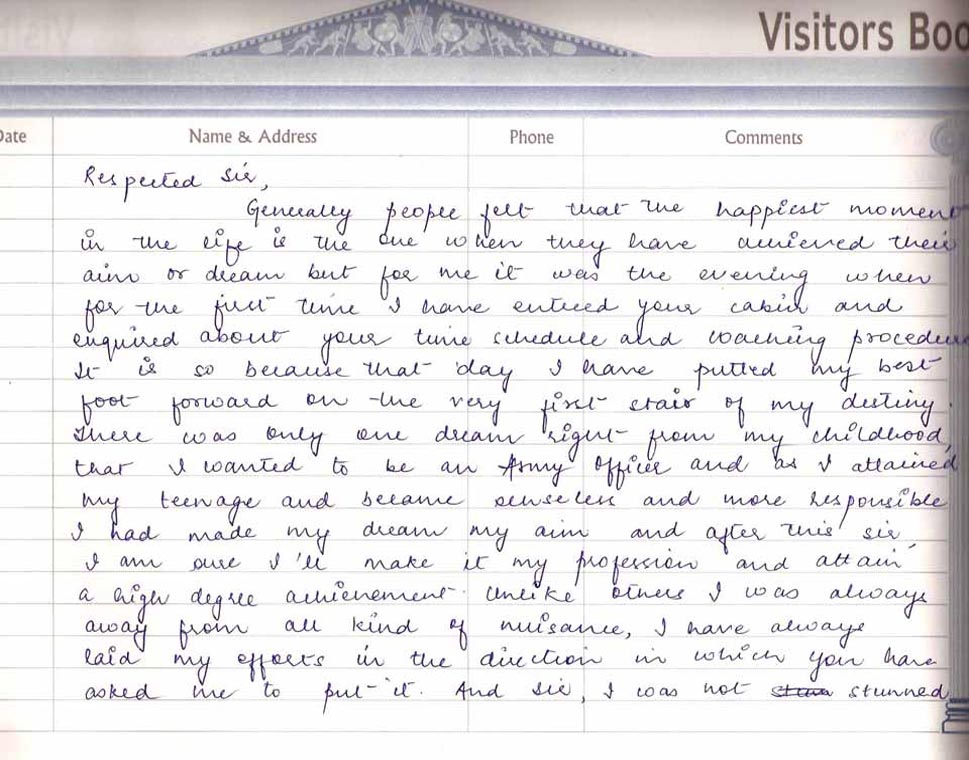 Visitors Boo
Date Name & Address Phone Comments
Respected Sir,
Generally people felt that the happiest moment
in the life is the one when they have achieved their
aim or dream but for me it was the evening when
for the first time I have entered your cabin and
enquired about your time schedule and coaching procedure
It is so because that day I have putted my best
foot forward on the very first stair of my destiny.
There was only one dream right from my childhood,
that I wanted to be an Army Officer and as I attained
my teenage and became senseless and more responsible
I had made my dream my aim and after this sir,
I am sure I'll make it my profession and attain
a high degree achievement. Unlike others I was always
away from all kind of nuisance, I have always
laid my efforts in the direction in which you have
asked me to put it. And sir, I was not stunned